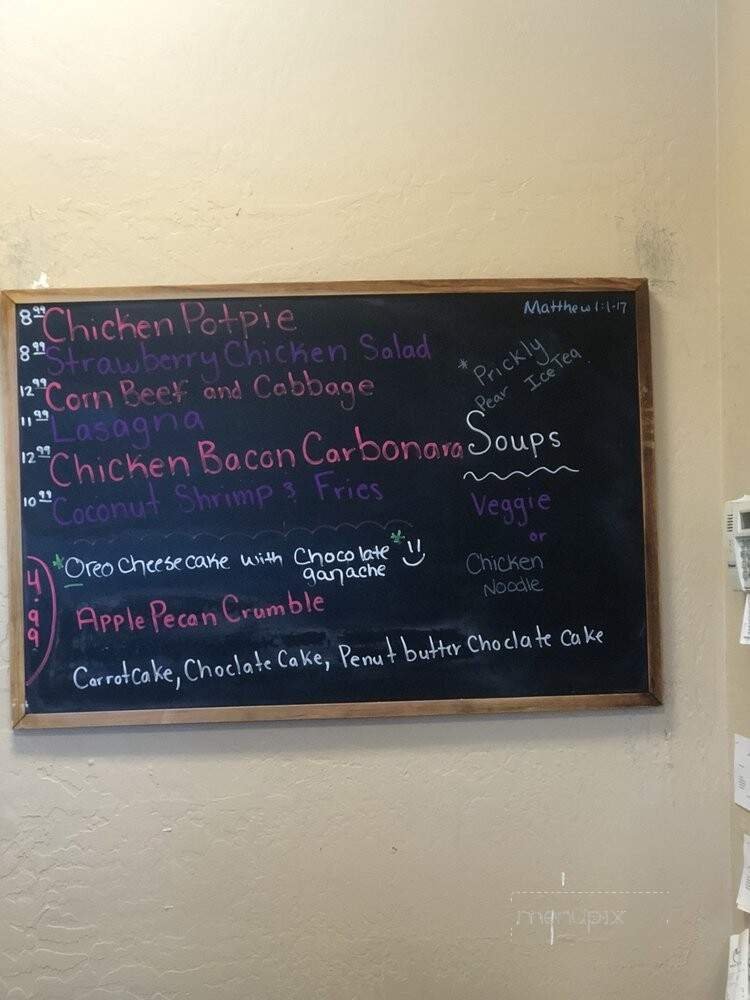 8.99 Chicken Potpie
8.99 Strawberry Chicken Salad
12.99 Corn Beef and Cabbage
11.99 Lasagna
12.99 Chicken Bacon Carbonara
10.99 Coconut Shrimp & Fries
*Oreo Cheesecake with Chocolate* ganache
4.99
Apple Pecan Crumble
Carrotcake, Choclate Cake, Penut butter Choclate cake
Matthew 1:1-17
* Prickly
Pear Ice Tea
Soups
Veggie
or
Chicken
Noodle
menupix